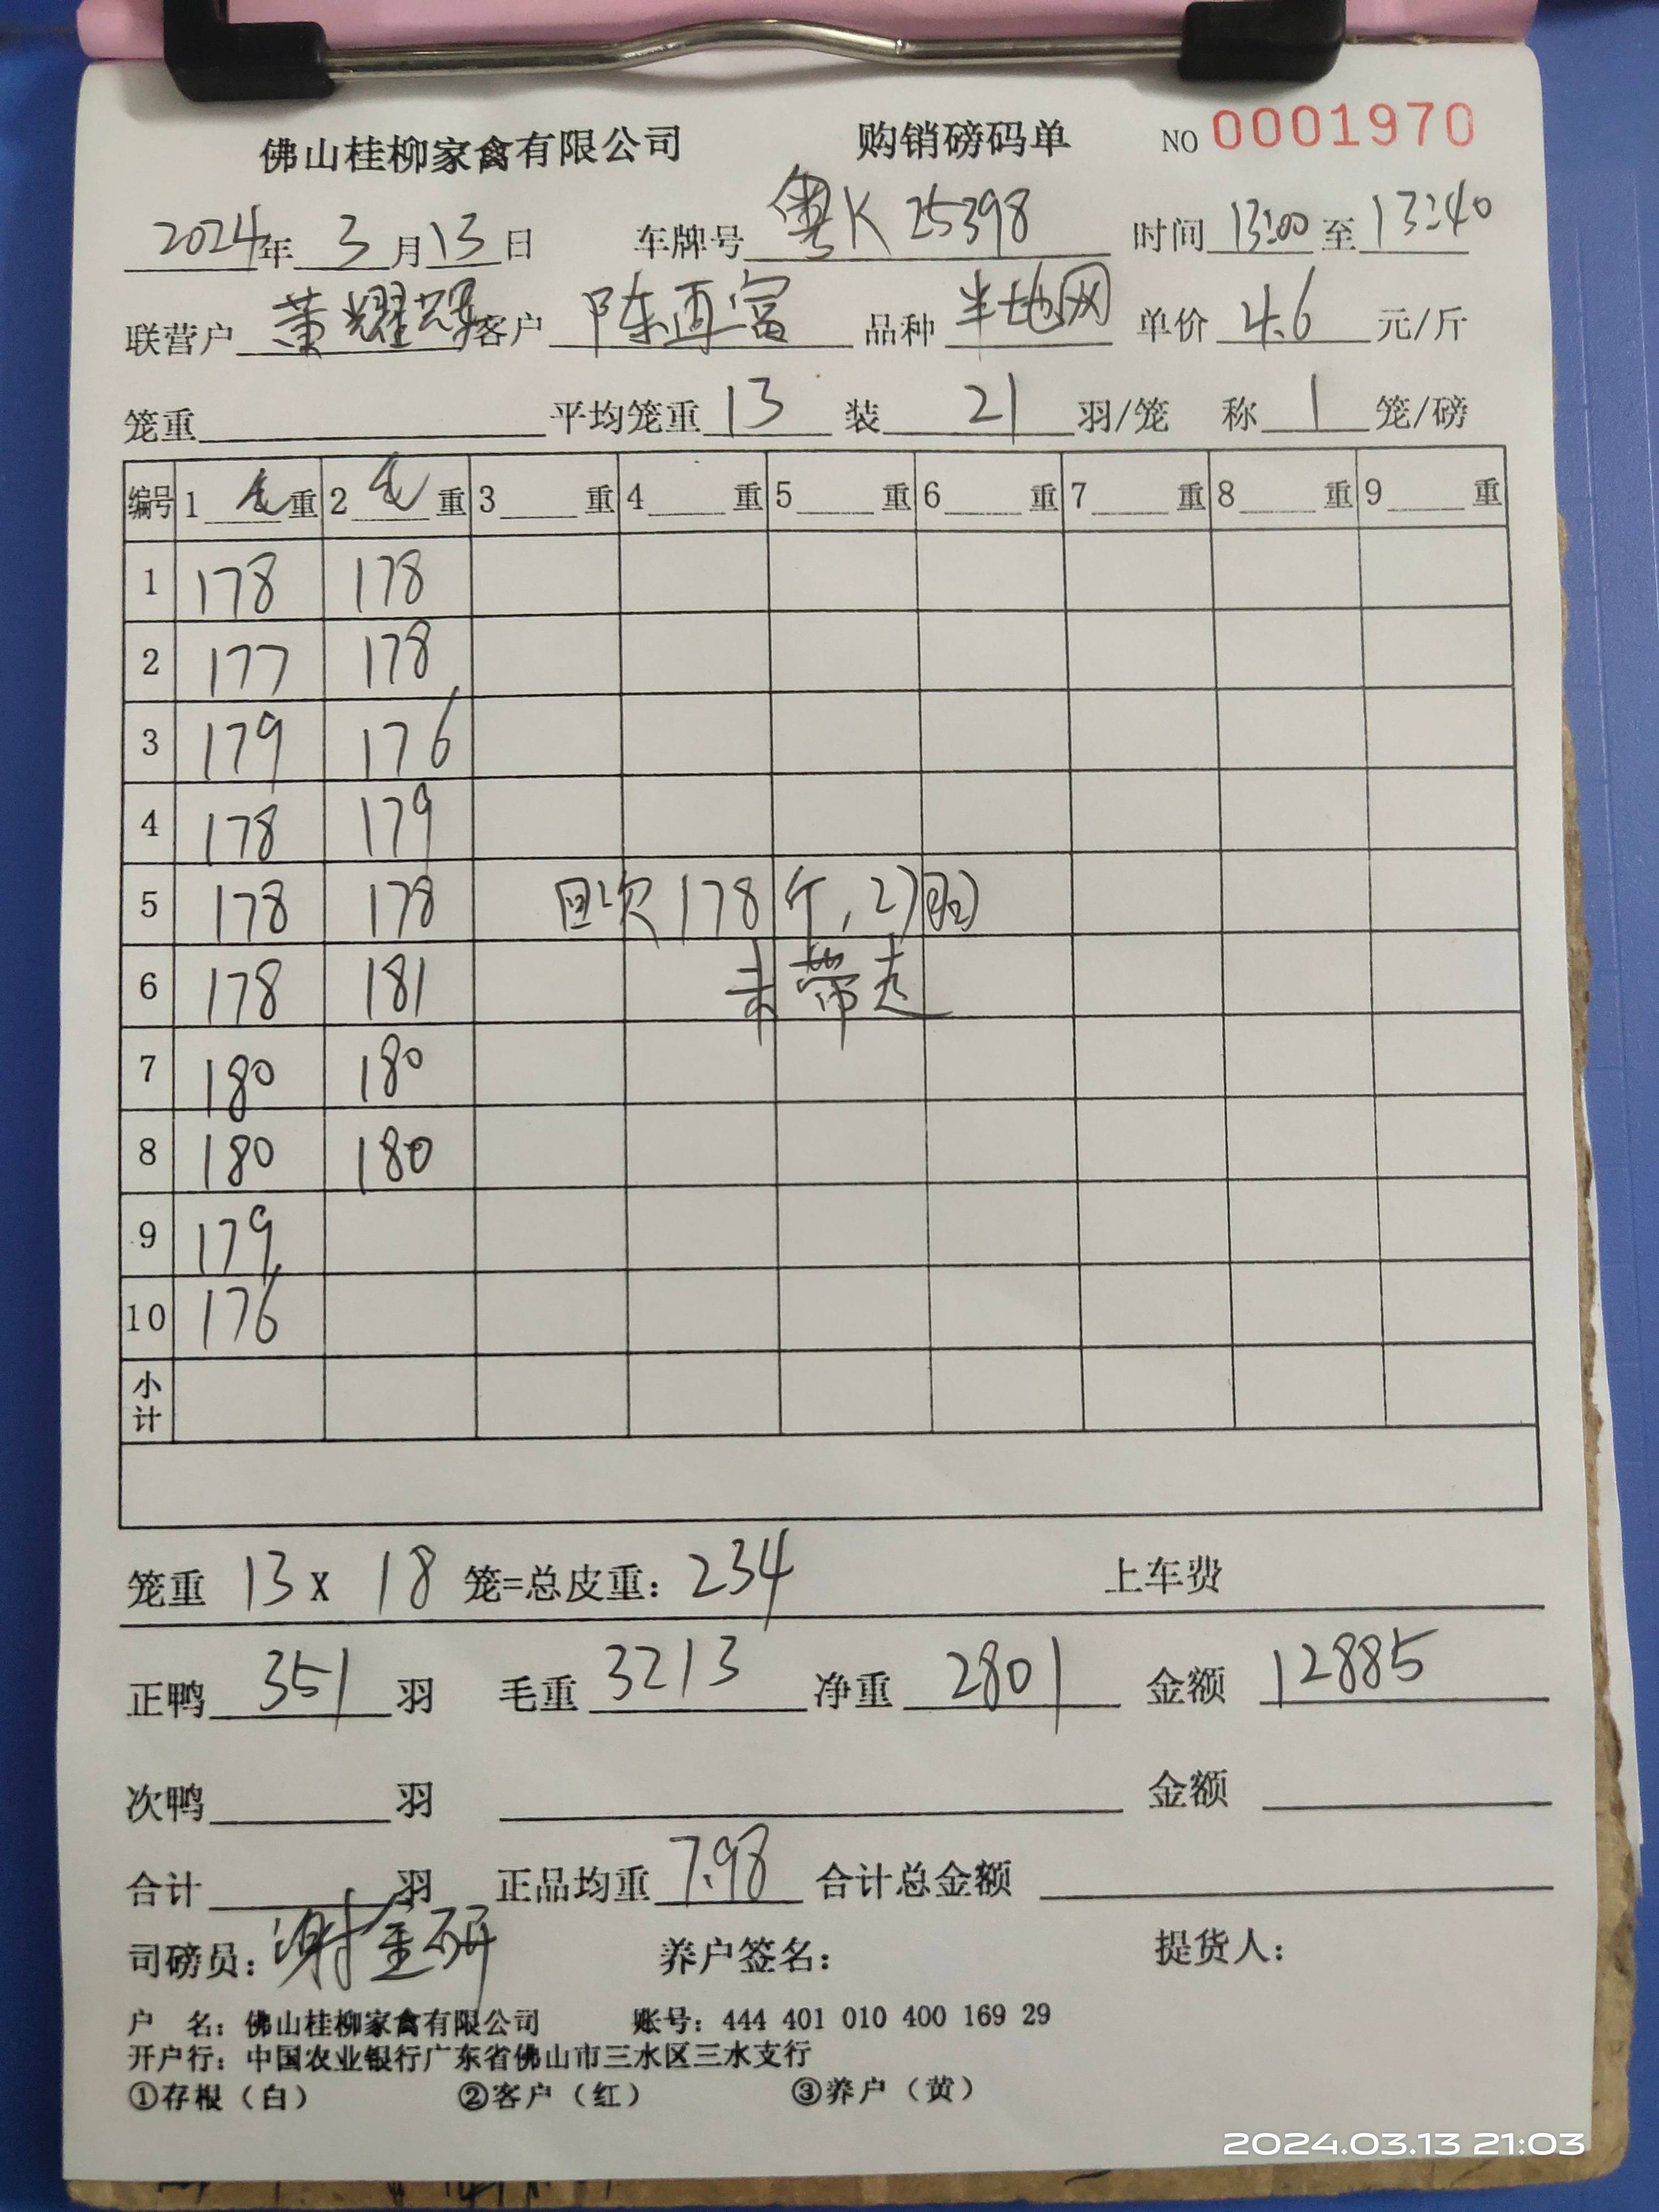 佛山桂柳家禽有限公司 购销磅码单 NO 0001970
2024年 3 月 13 日 车牌号 粤K 25398 时间 13:00 至 13:40
联营户 荣耀辉 客户 陈再富 品种 半地网 单价 4.6 元/斤
笼重 平均笼重 13 装 21 羽/笼 称 1 笼/磅
编号 1 毛 重 2 毛 重 3 重 4 重 5 重 6 重 7 重 8 重 9 重
1 178 178
2 177 178
3 179 176
4 178 179
5 178 178 回次178斤,27羽
6 178 181 未带走
7 180 180
8 180 180
9 179
10 176
小计
笼重 13 X 18 笼=总皮重: 234 上车费
正鸭 351 羽 毛重 3213 净重 2801 金额 12885
次鸭 羽 金额
合计 羽 正品均重 7.98 合计总金额
司磅员: 谢金研 养户签名: 提货人:
户 名: 佛山桂柳家禽有限公司 账号: 444 401 010 400 169 29
开户行: 中国农业银行广东省佛山市三水区三水支行
①存根(白) ②客户(红) ③养户(黄)
2024.03.13 21:03